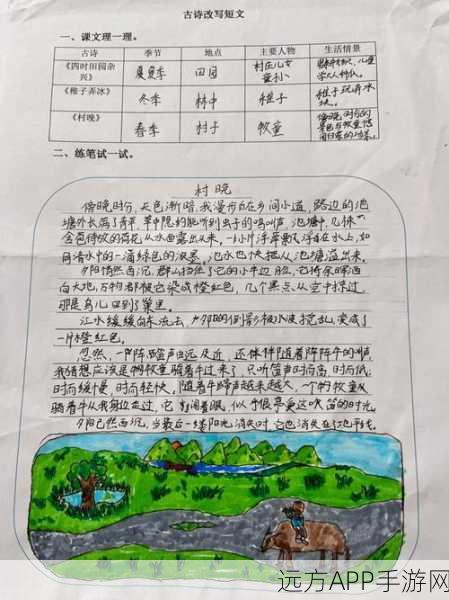 古诗改写短文
一、课文理一理。
古诗 季节 地点 主要人物 生活情景
《四时田园杂兴》 夏季 田园 村庄儿女 童孙
《稚子弄冰》 冬季 林中 稚子 稚子玩弄冰块。
《村晚》 春季 村子 牧童
二、练笔试一试。
村晚
傍晚时分,天色渐暗,我漫步在乡间小道,路边的池
塘外长满了青草,草中隐约能听到虫子的鸣叫声,池塘中,几株
含苞待放的荷花从水面露出头来。一小片浮萍飘浮在水上,如
同清水中的一滴绿色的汉墨。池水也快把从池塘溢出来。
夕阳悄然西沉,群山挡住了它的小半边脸,它将余晖洒
向大地,万物都被它染成橙红色,几个黑点从空中掠过,
那是鸟儿回到了巢里。
江水缓缓向东流去,夕阳的倒影被水波搅乱,变成了
一片橙红色。
忽然,一阵阵笛声由远及近,还伴随着阵阵牛的叫声,
我猜想应该是牧童骑着牛过来了,只听笛声时高时低,
时而缓慢,时而轻快,随着牛蹄声越来越大,一个牧童
骑着牛从我身边走过,它闭着眼,似乎很享受这吹笛的时光。
夕阳已然西沉,当最后一缕阳光消失时,它也消失在了地平线。
远方APP手游网